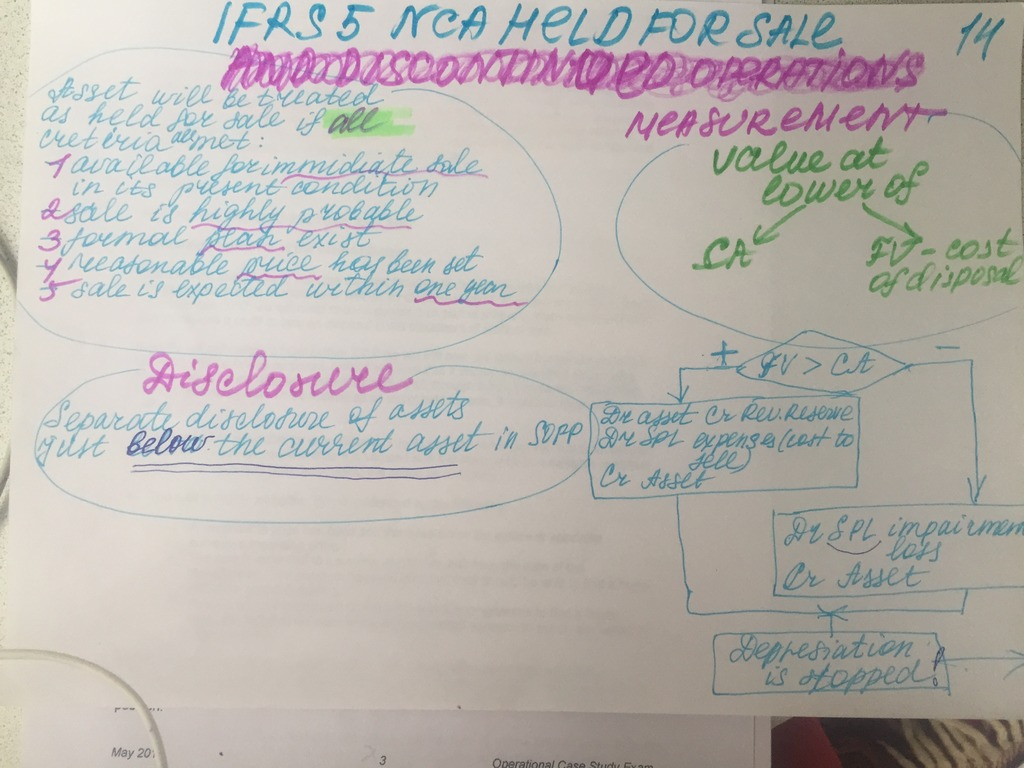 IFRS 5 NCA HELD FOR SALE
14
AND DISCONTINUED OPERATIONS
Asset will be treated
as held for sale if all
creteria all met:
1 available for immidiate sale
in its present condition
2 sale is highly probable
3 formal plan exist
4 reasonable price has been set
5 sale is expected within one year
MEASUREMENT
value at
lower of
CA
FV - cost
of disposal
Disclosure
Separate disclosure of assets
just below the current asset in SOFP
+
FV > CA
-
Dr asset Cr Rev. Reserve
Dr SPL expenses (cost to
sell)
Cr Asset
Dr SPL impairmen
loss
Cr Asset
Depresiation
is stopped!
May 20
3
Operational Case Study Exam